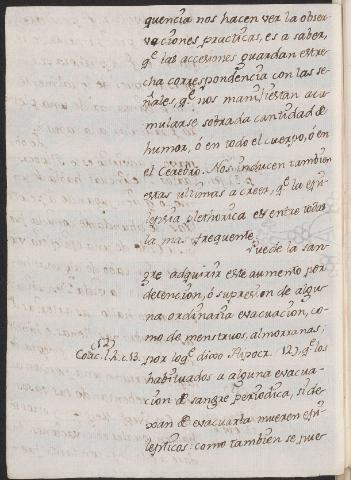 quencia nos hacen ver la obser
vaciones practicas, es a saber,
qe. las accesiones guardan estre
cha correspondencia con las se
ñales, qe. nos manifiestan acu
mularse sobrada cantidad de
humor, ó en todo el cuerpo, ó en
el Cerebro. Nos inducen tambien
estas ultimas a creer, qe. la epi
lepsia plethorica es entre todas
la mas frequente.
Puede la san
gre adquirir este aumento, por
detencion, ó supresion de algu
na ordinaria evacuacion, co
mo de menstruos, almorranas;
(12)
Coac. l. 2. c. 13.
por lo qe. dixo Hipocr. (12), qe. los
habituados a alguna evacua
cion de sangre periodica, si de
xan de evacuarla mueren epi
lepticos: como tambien se pue